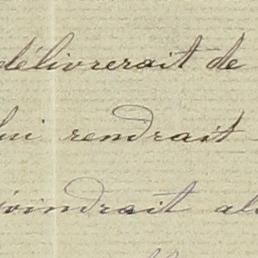 délivrerait de
lui rendrait
joindrait al